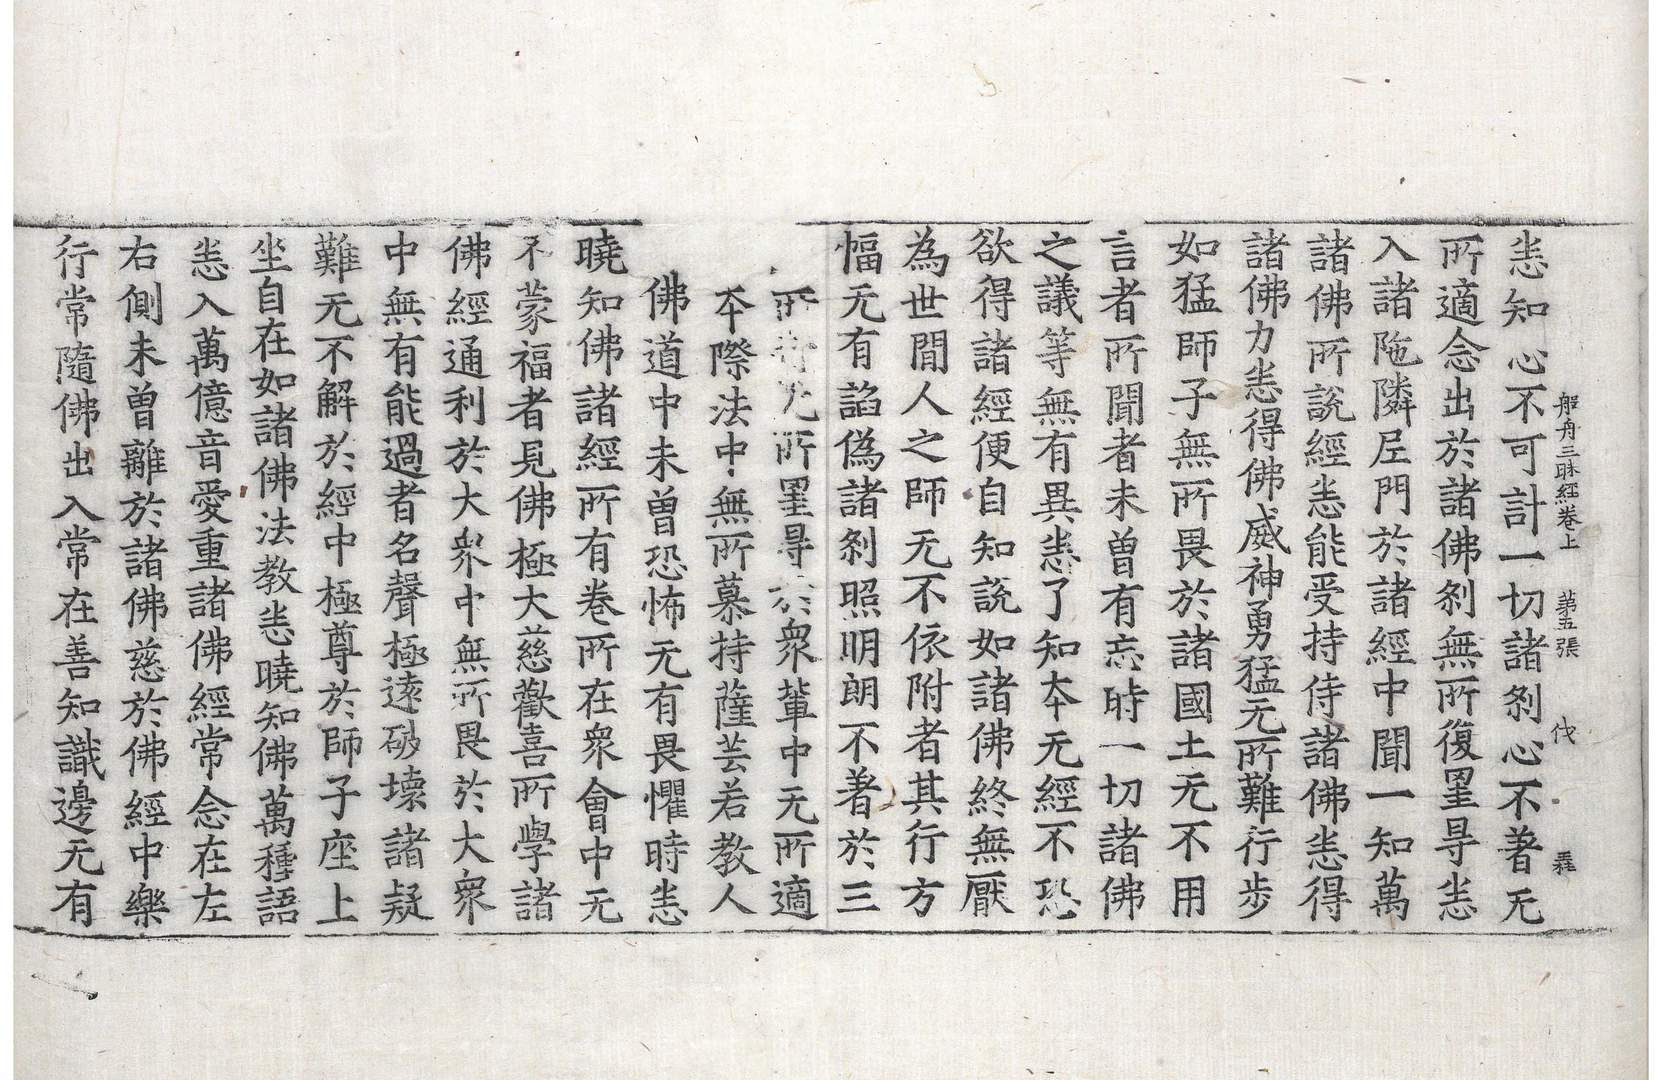 般舟三昧經卷上 第五張 伐
悉知心不可計一切諸刹心不著无
所適念出於諸佛刹無所復罣㝵悉
入諸陁隣尼門於諸經中聞一知萬
諸佛所說經悉能受持侍諸佛悉得
諸佛力悉得佛威神勇猛无所難行步
如猛師子無所畏於諸國土无不用
言者所聞者未曾有忘時一切諸佛
之議等無有異悉了知本无經不恐
欲得諸經便自知說如諸佛終無厭
為世間人之師无不依附者其行方
幅无有諂偽諸刹照明朗不著於三
所 无所罣㝵於衆軰中无所適
本際法中無所慕持薩芸若教人
佛道中未曾恐怖无有畏懼時悉
曉知佛諸經所有卷所在衆會中无
不蒙福者見佛極大慈歡喜所學諸
佛經通利於大衆中無所畏於大衆
中無有能過者名聲極遠破壞諸疑
難无不解於經中極尊於師子座上
坐自在如諸佛法教悉曉知佛萬種語
悉入萬億音愛重諸佛經常念在左
右側未曾離於諸佛慈於佛經中樂
行常隨佛出入常在善知識邊无有